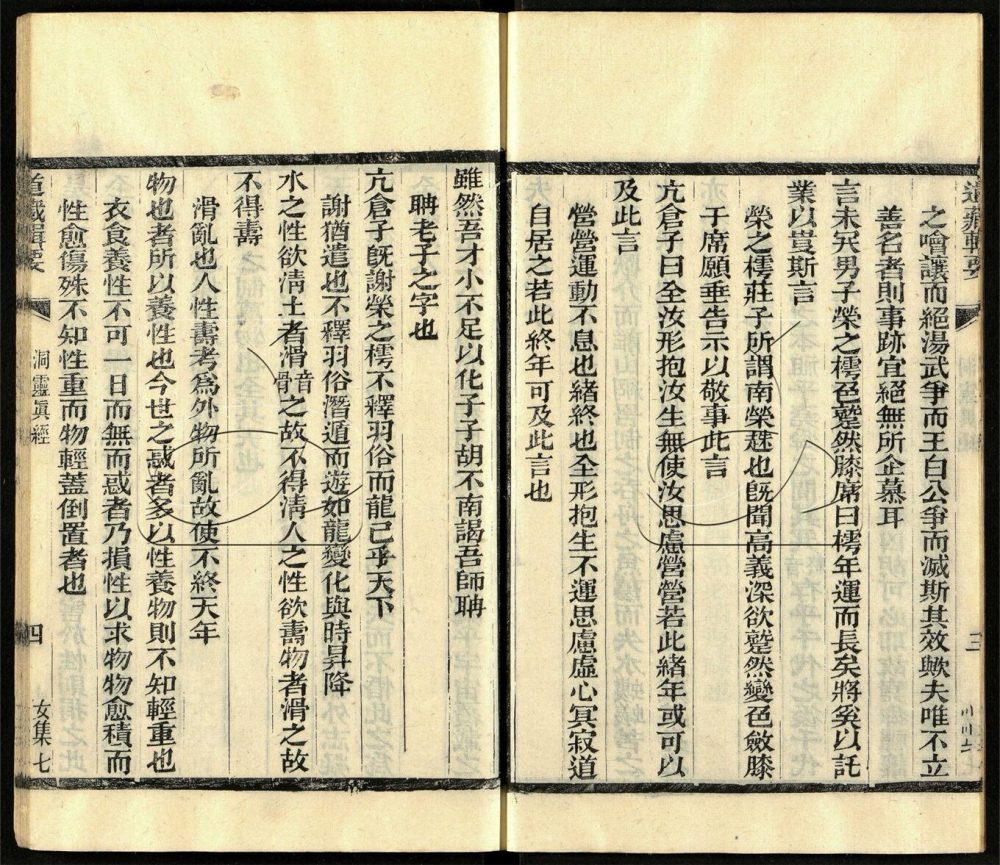 道藏輯要
三
之噲讓而絕湯武爭而王白公爭而滅斯其效歟夫唯不立
善名者則事跡宜絕無所企慕耳
言未卒男子榮之樗色蹵然膝席曰樗年運而長矣將奚以託
業以貲斯言
榮之樗莊子所謂南榮趎也旣聞高義深欲蹵然變色斂膝
于席願垂告示以敬事此言
亢倉子曰全汝形抱汝生無使汝思慮營營若此緒年或可以
及此言
營營運動不息也緒終也全形抱生不運思慮虛心冥寂道
自居之若此終年可及此言也
雖然吾才小不足以化子子胡不南謁吾師聃
聃老子之字也
亢倉子旣謝榮之樗不釋羽俗而龍已乎天下
謝猶遣也不釋羽俗潛遁而遊如龍變化與時昇降
水之性欲淸土者滑音骨之故不得淸人之性欲壽物者滑之故
不得壽
滑亂也人性壽考爲外物所亂故使不終天年
物也者所以養性也今世之惑者多以性養物則不知輕重也
衣食養性不可一日而無而惑者乃損性以求物物愈積而
性愈傷殊不知性重而物輕蓋倒置者也
道藏輯要
洞靈眞經
四
女集七